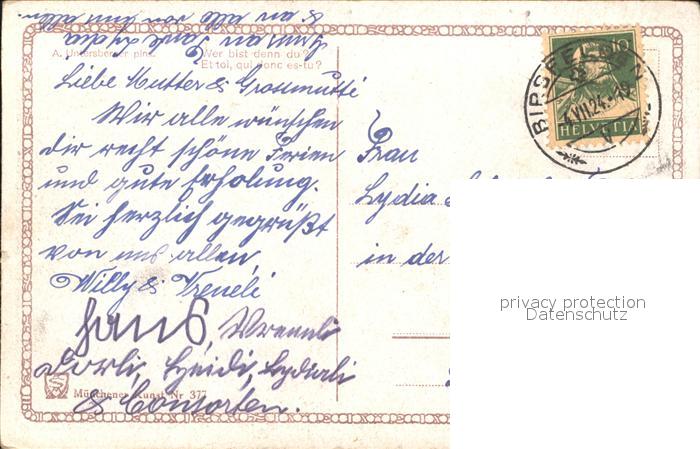 A. Untersberger pinx.
Wer bist denn du?
Et toi, qui donc es-tu?
Liebe Mutter & Grossmutti
Wir alle wünschen
dir recht schöne Ferien
und gute Erholung.
Sei herzlich gegrüßt
von uns allen,
Willy & Vreneli
Hans, Vrenneli
Dorli, Heidi, Lydiali
& Consorten.
Münchener Kunst Nr 377
10
HELVETIA
VII.24
Frau
Lydia
in der
privacy protection
Datenschutz